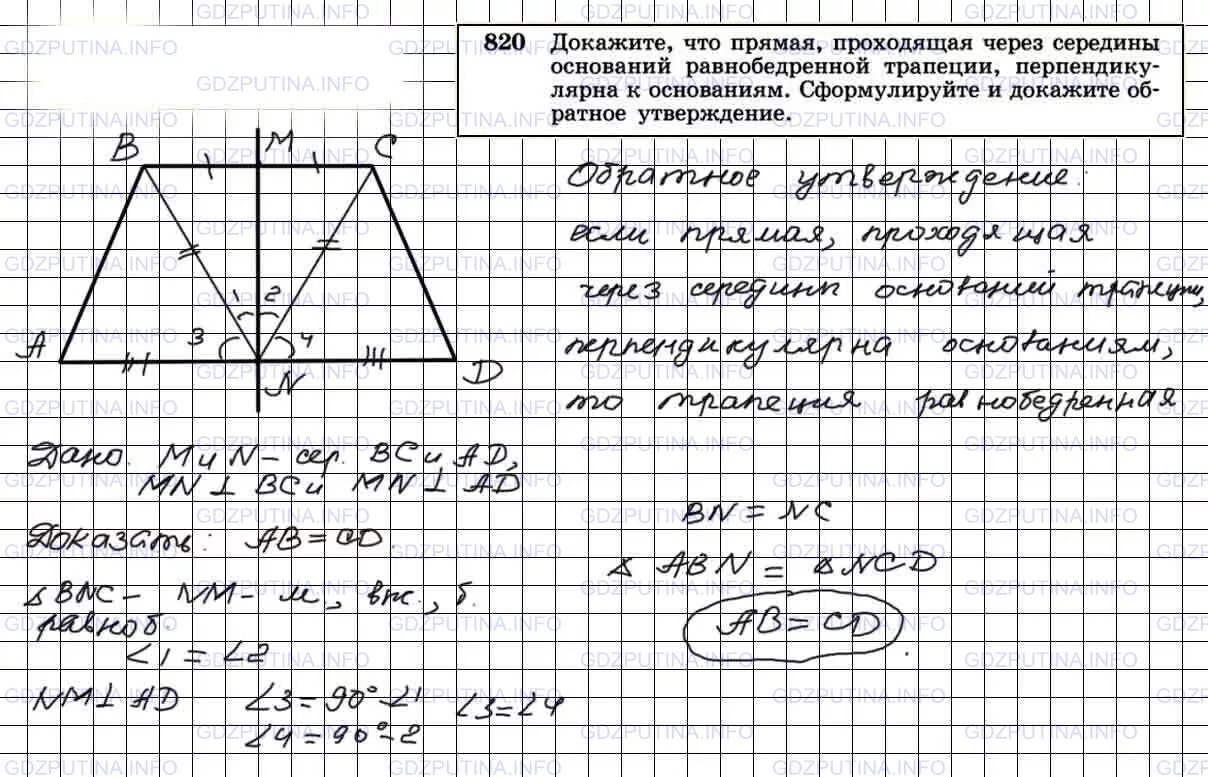 820 Докажите, что прямая, проходящая через середины
оснований равнобедренной трапеции, перпендику-
лярна к основаниям. Сформулируйте и докажите об-
ратное утверждение.
B M C
1 2
3 4
A N D
Обратное утверждение:
если прямая, проходящая
через середины оснований трапеции,
перпендикулярна основаниям,
то трапеция равнобедренная
Дано: M и N – сер. BC и AD,
MN ⊥ BC и MN ⊥ AD
Доказать: AB = CD.
△ BNC – NM – м., выс., б.
равноб.
∠1 = ∠2
NM ⊥ AD ∠3 = 90° – ∠1 ∠3 = ∠4
∠4 = 90° – 2
BN = NC
△ ABN = △ NCD
AB = CD
GDZPUTINA.INFO